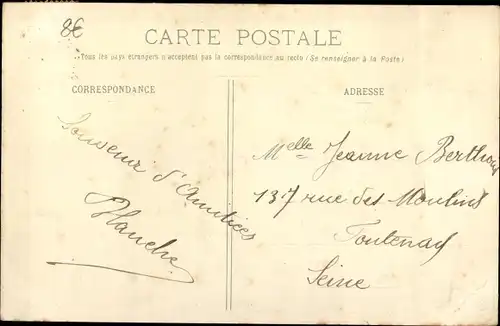 8€
CARTE POSTALE
Tous les pays étrangers n'acceptent pas la correspondance au recto (Se renseigner à la Poste)
CORRESPONDANCE
ADRESSE
Souvenir d'Amitiés
Blanche
Melle Jeanne
137 rue des Moulins
Fontenay
Seine